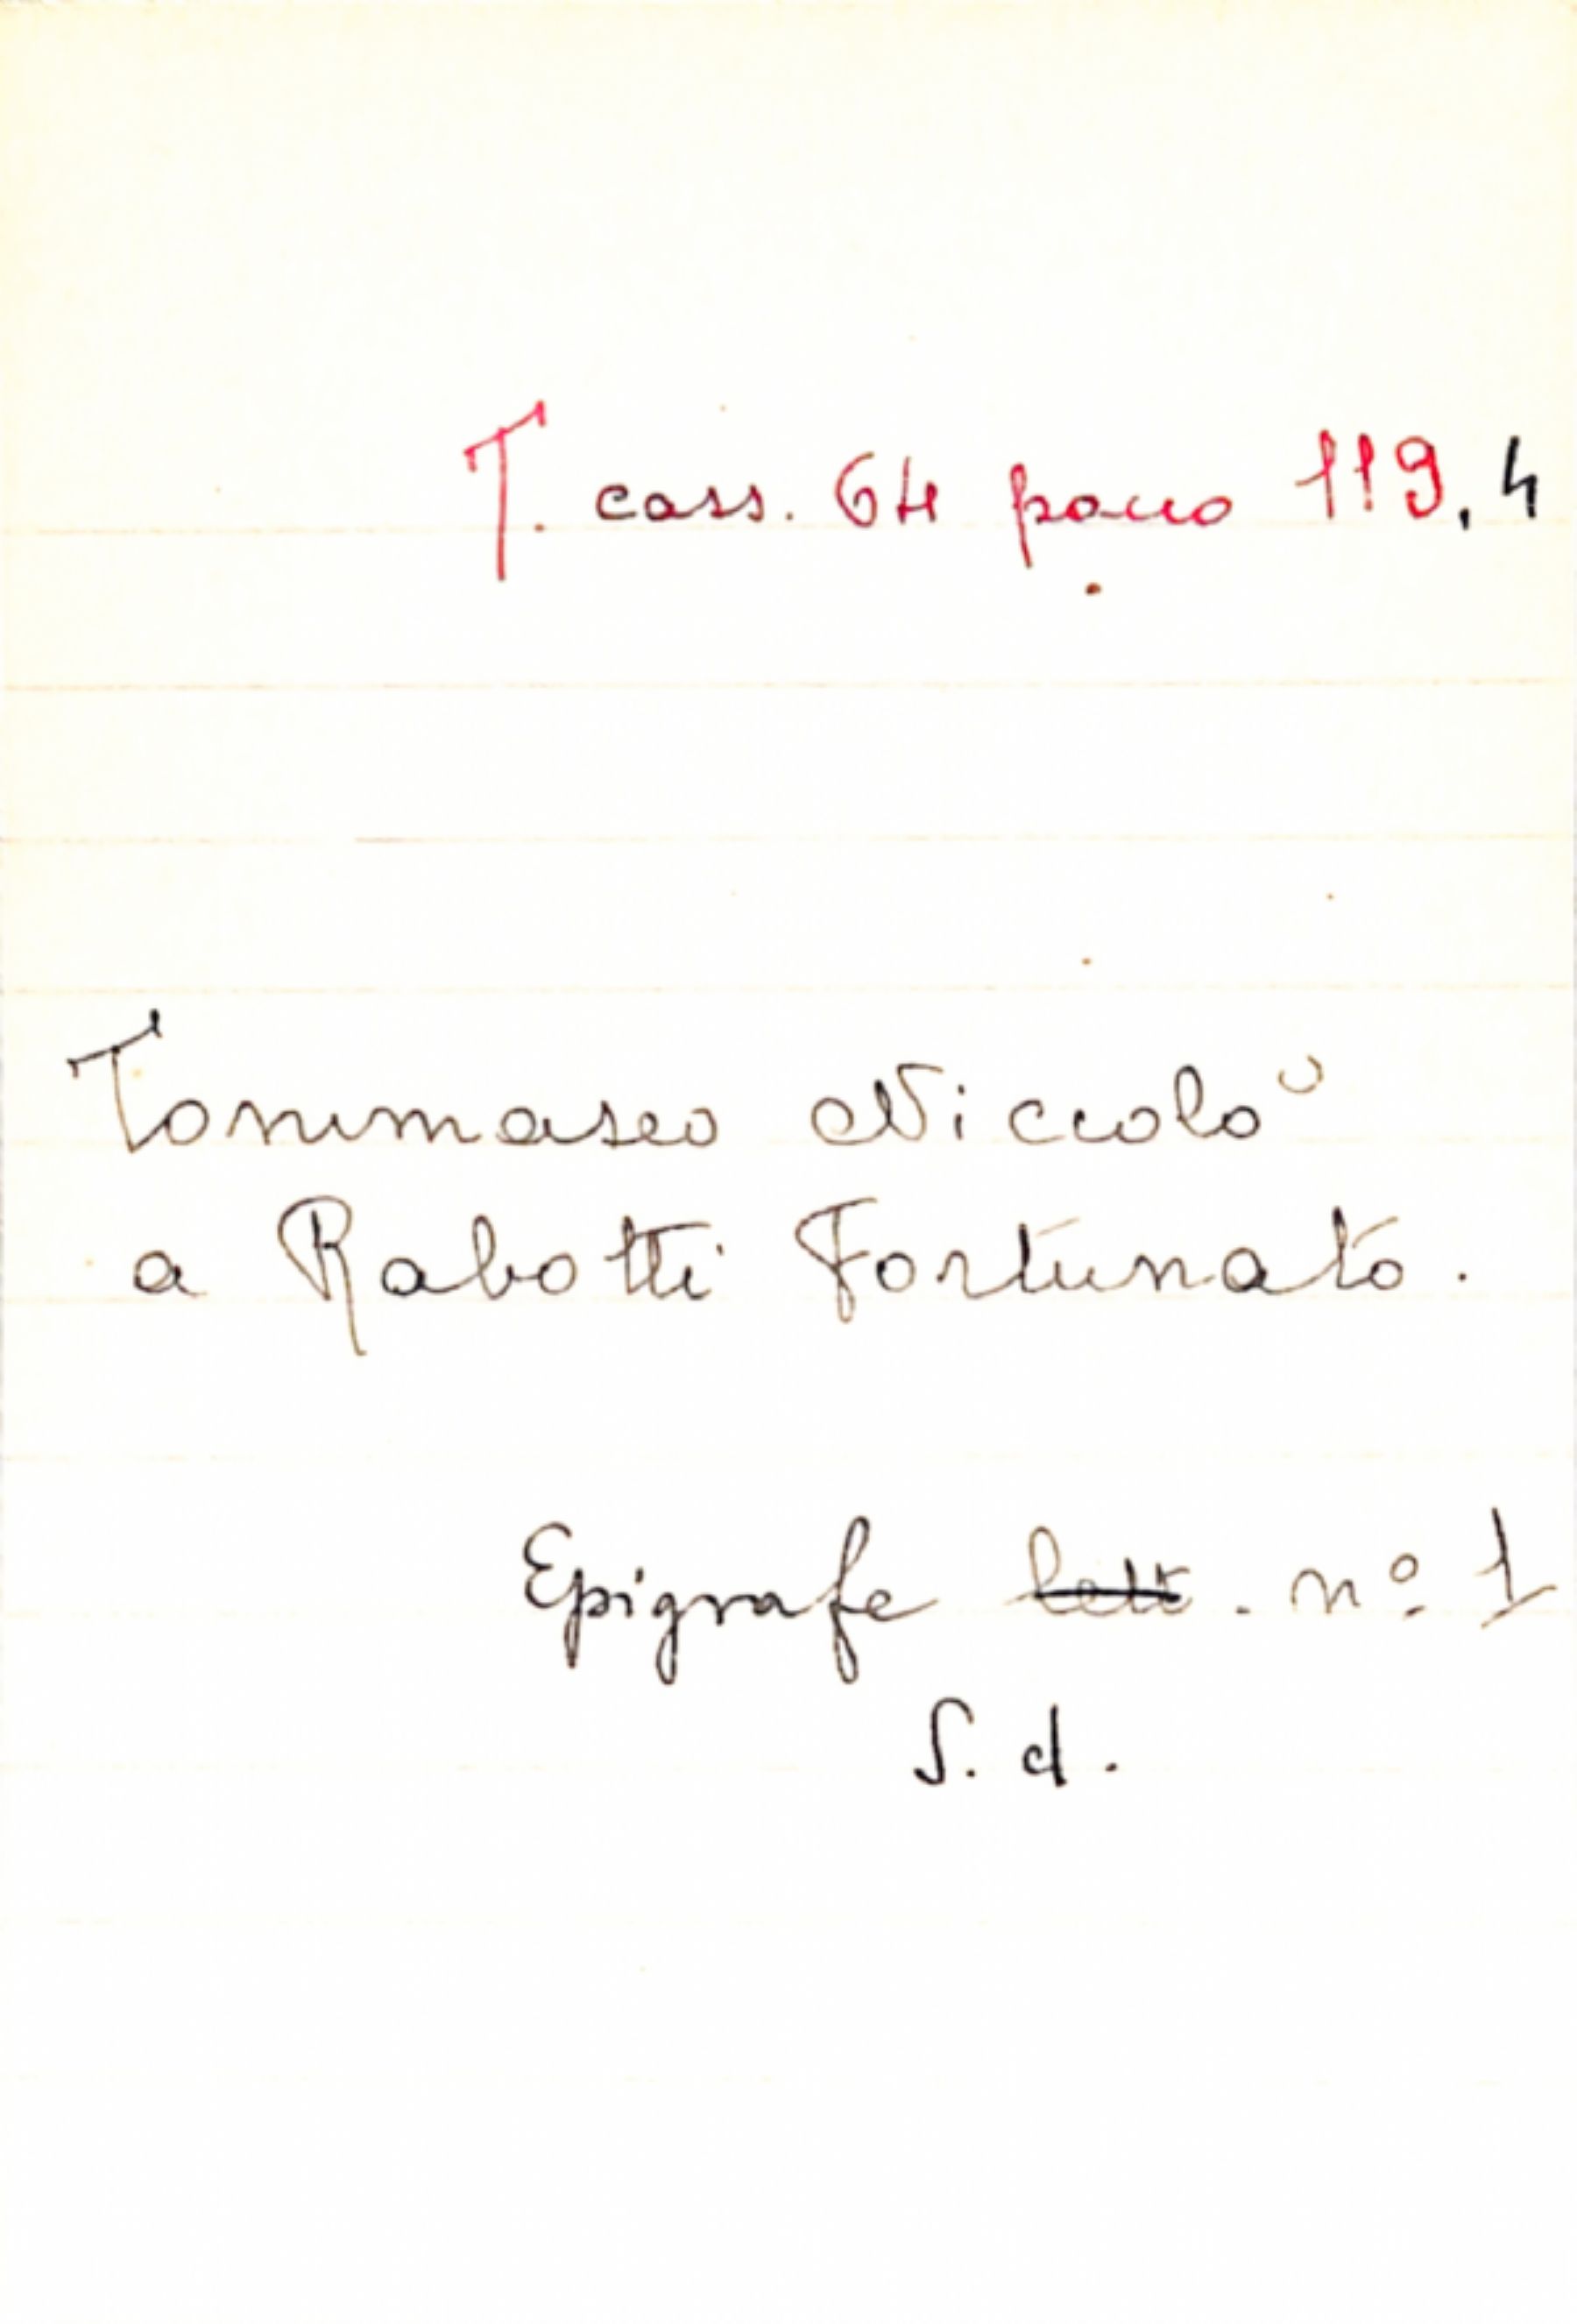 T. cass. 64 pacco 119, 4
Tommaseo Niccolò
a Rabotti Fortunato.
Epigrafe lett. nº 1
S. d.